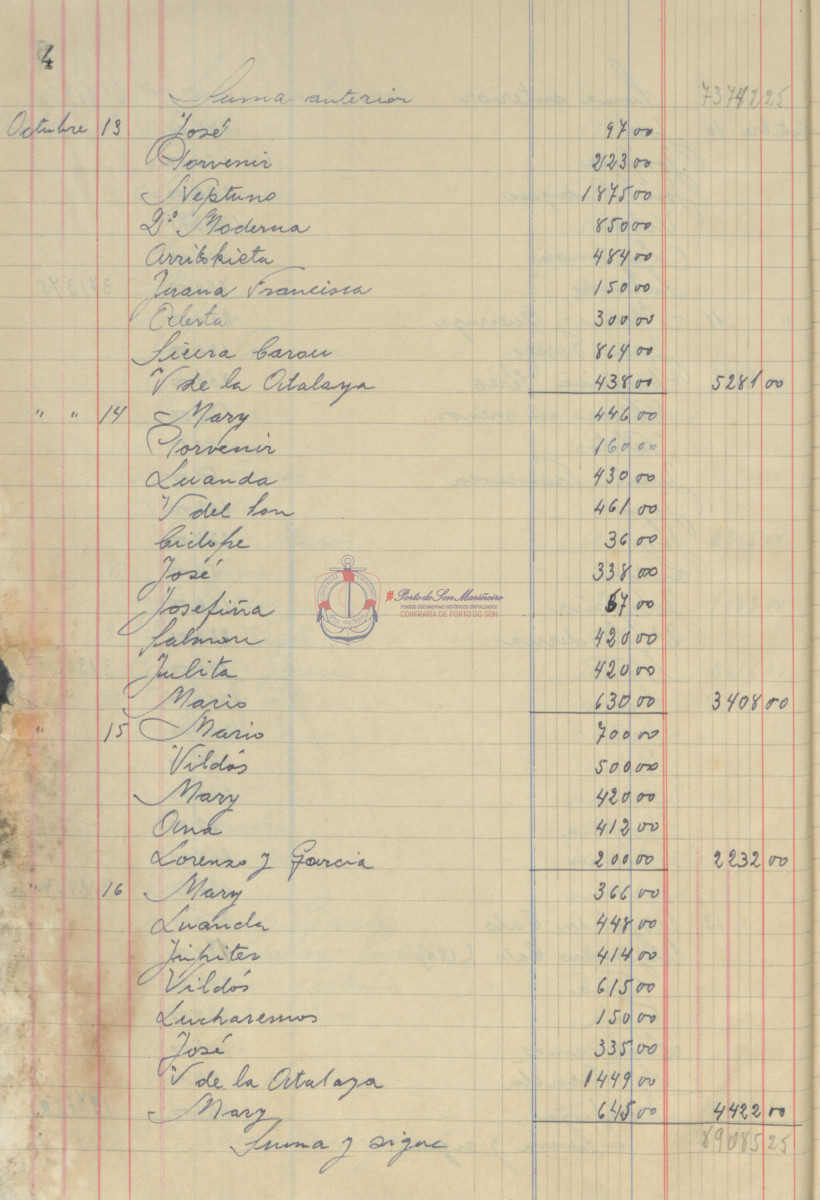 4
Suma anterior 73742 25
Octubre 13 José 97 00
Porvenir 223 00
Neptuno 1875 00
2ª Moderna 850 00
Arritokieta 484 00
Juana Francisca 150 00
Celesta 300 00
Sierra Carau 864 00
V de la Atalaya 438 00 5281 00
" " 14 Mary 446 00
Porvenir 160 00
Luanda 430 00
V del Son 461 00
Ciclope 36 00
José 338 00
Josefiña 67 00
Salmon 420 00
Julita 420 00
Mario 630 00 3408 00
" 15 Mario 700 00
Vildós 500 00
Mary 420 00
Ana 412 00
Lorenzo y Garcia 200 00 2232 00
" 16 Mary 366 00
Luanda 448 00
Jupiter 414 00
Vildós 615 00
Lucharemos 150 00
José 335 00
V de la Atalaya 1449 00
Mary 645 00 4422 00
Suma y sigue 89085 25
#Porto do Son Mariñeiro
FONDOS DOCUMENTAIS HISTÓRICOS DIXITALIZADOS
CONFRARÍA DE PORTO DO SON